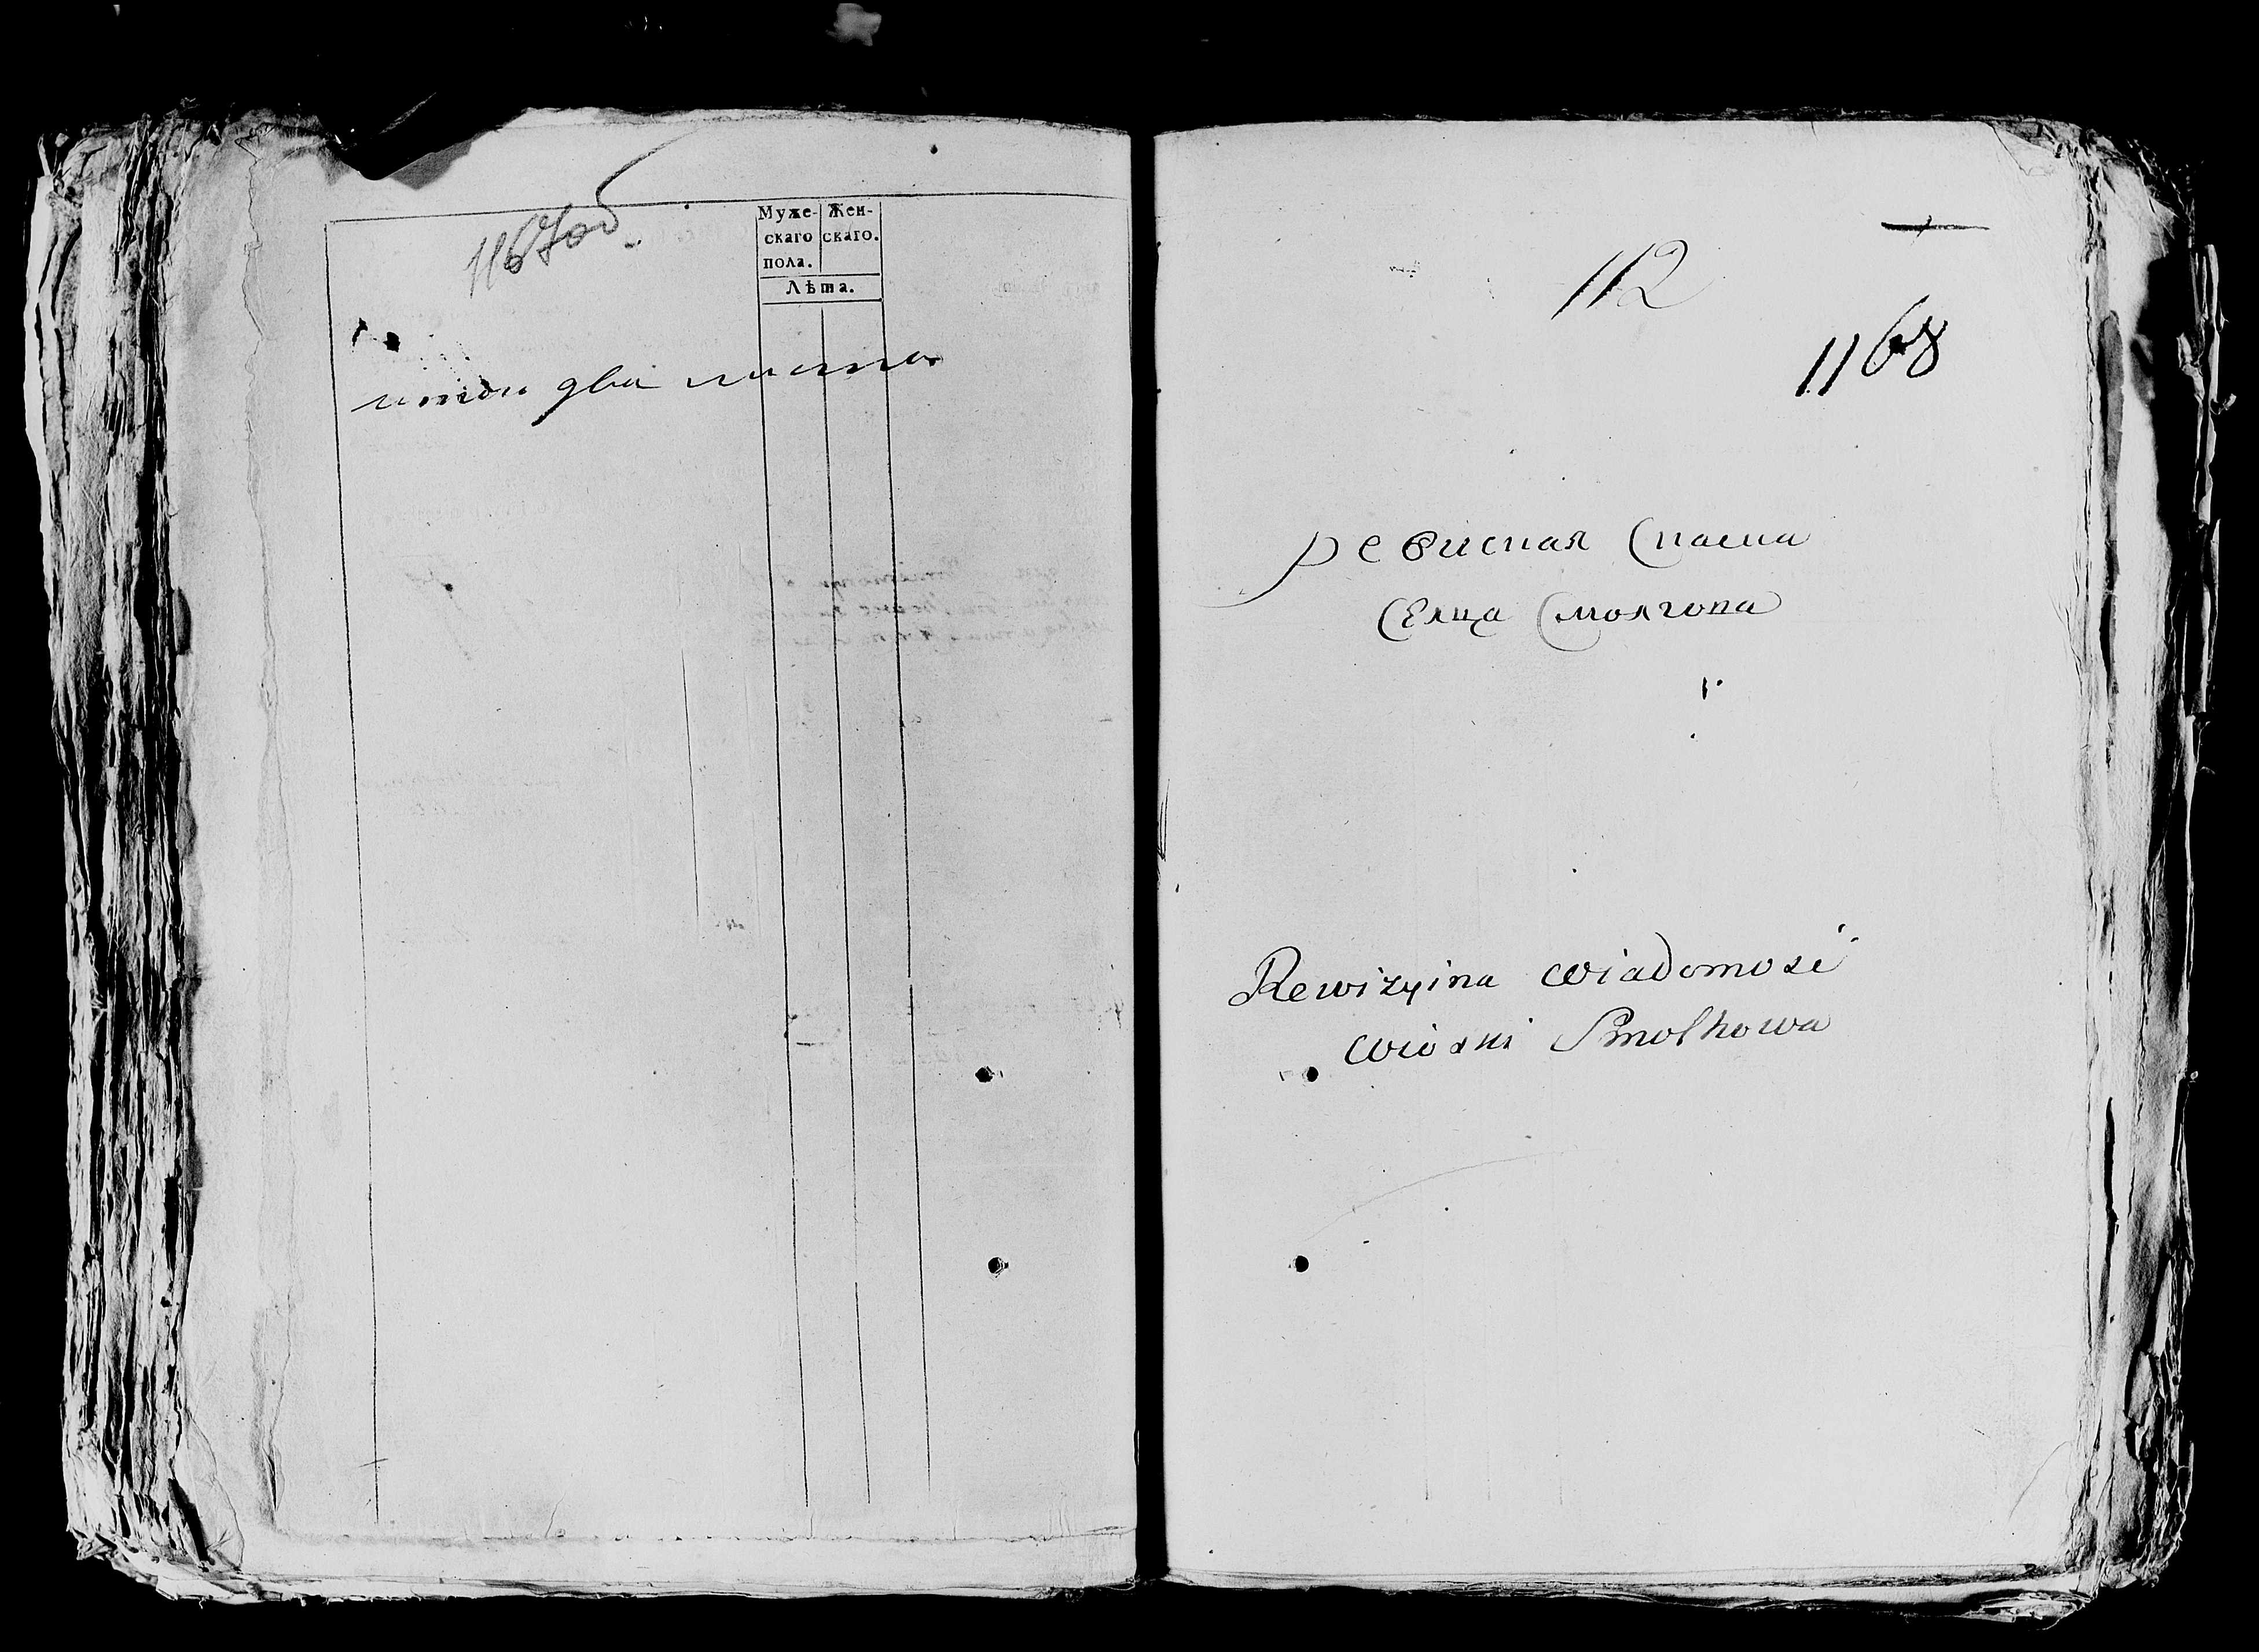 1167об.
Муже- Жен-
скаго скаго.
пола.
Лѣта.
итого два листа
112
1168
ревисная Скаска
Селца Смолгова
Rewizyina wiadomość
wioski Smolhowa